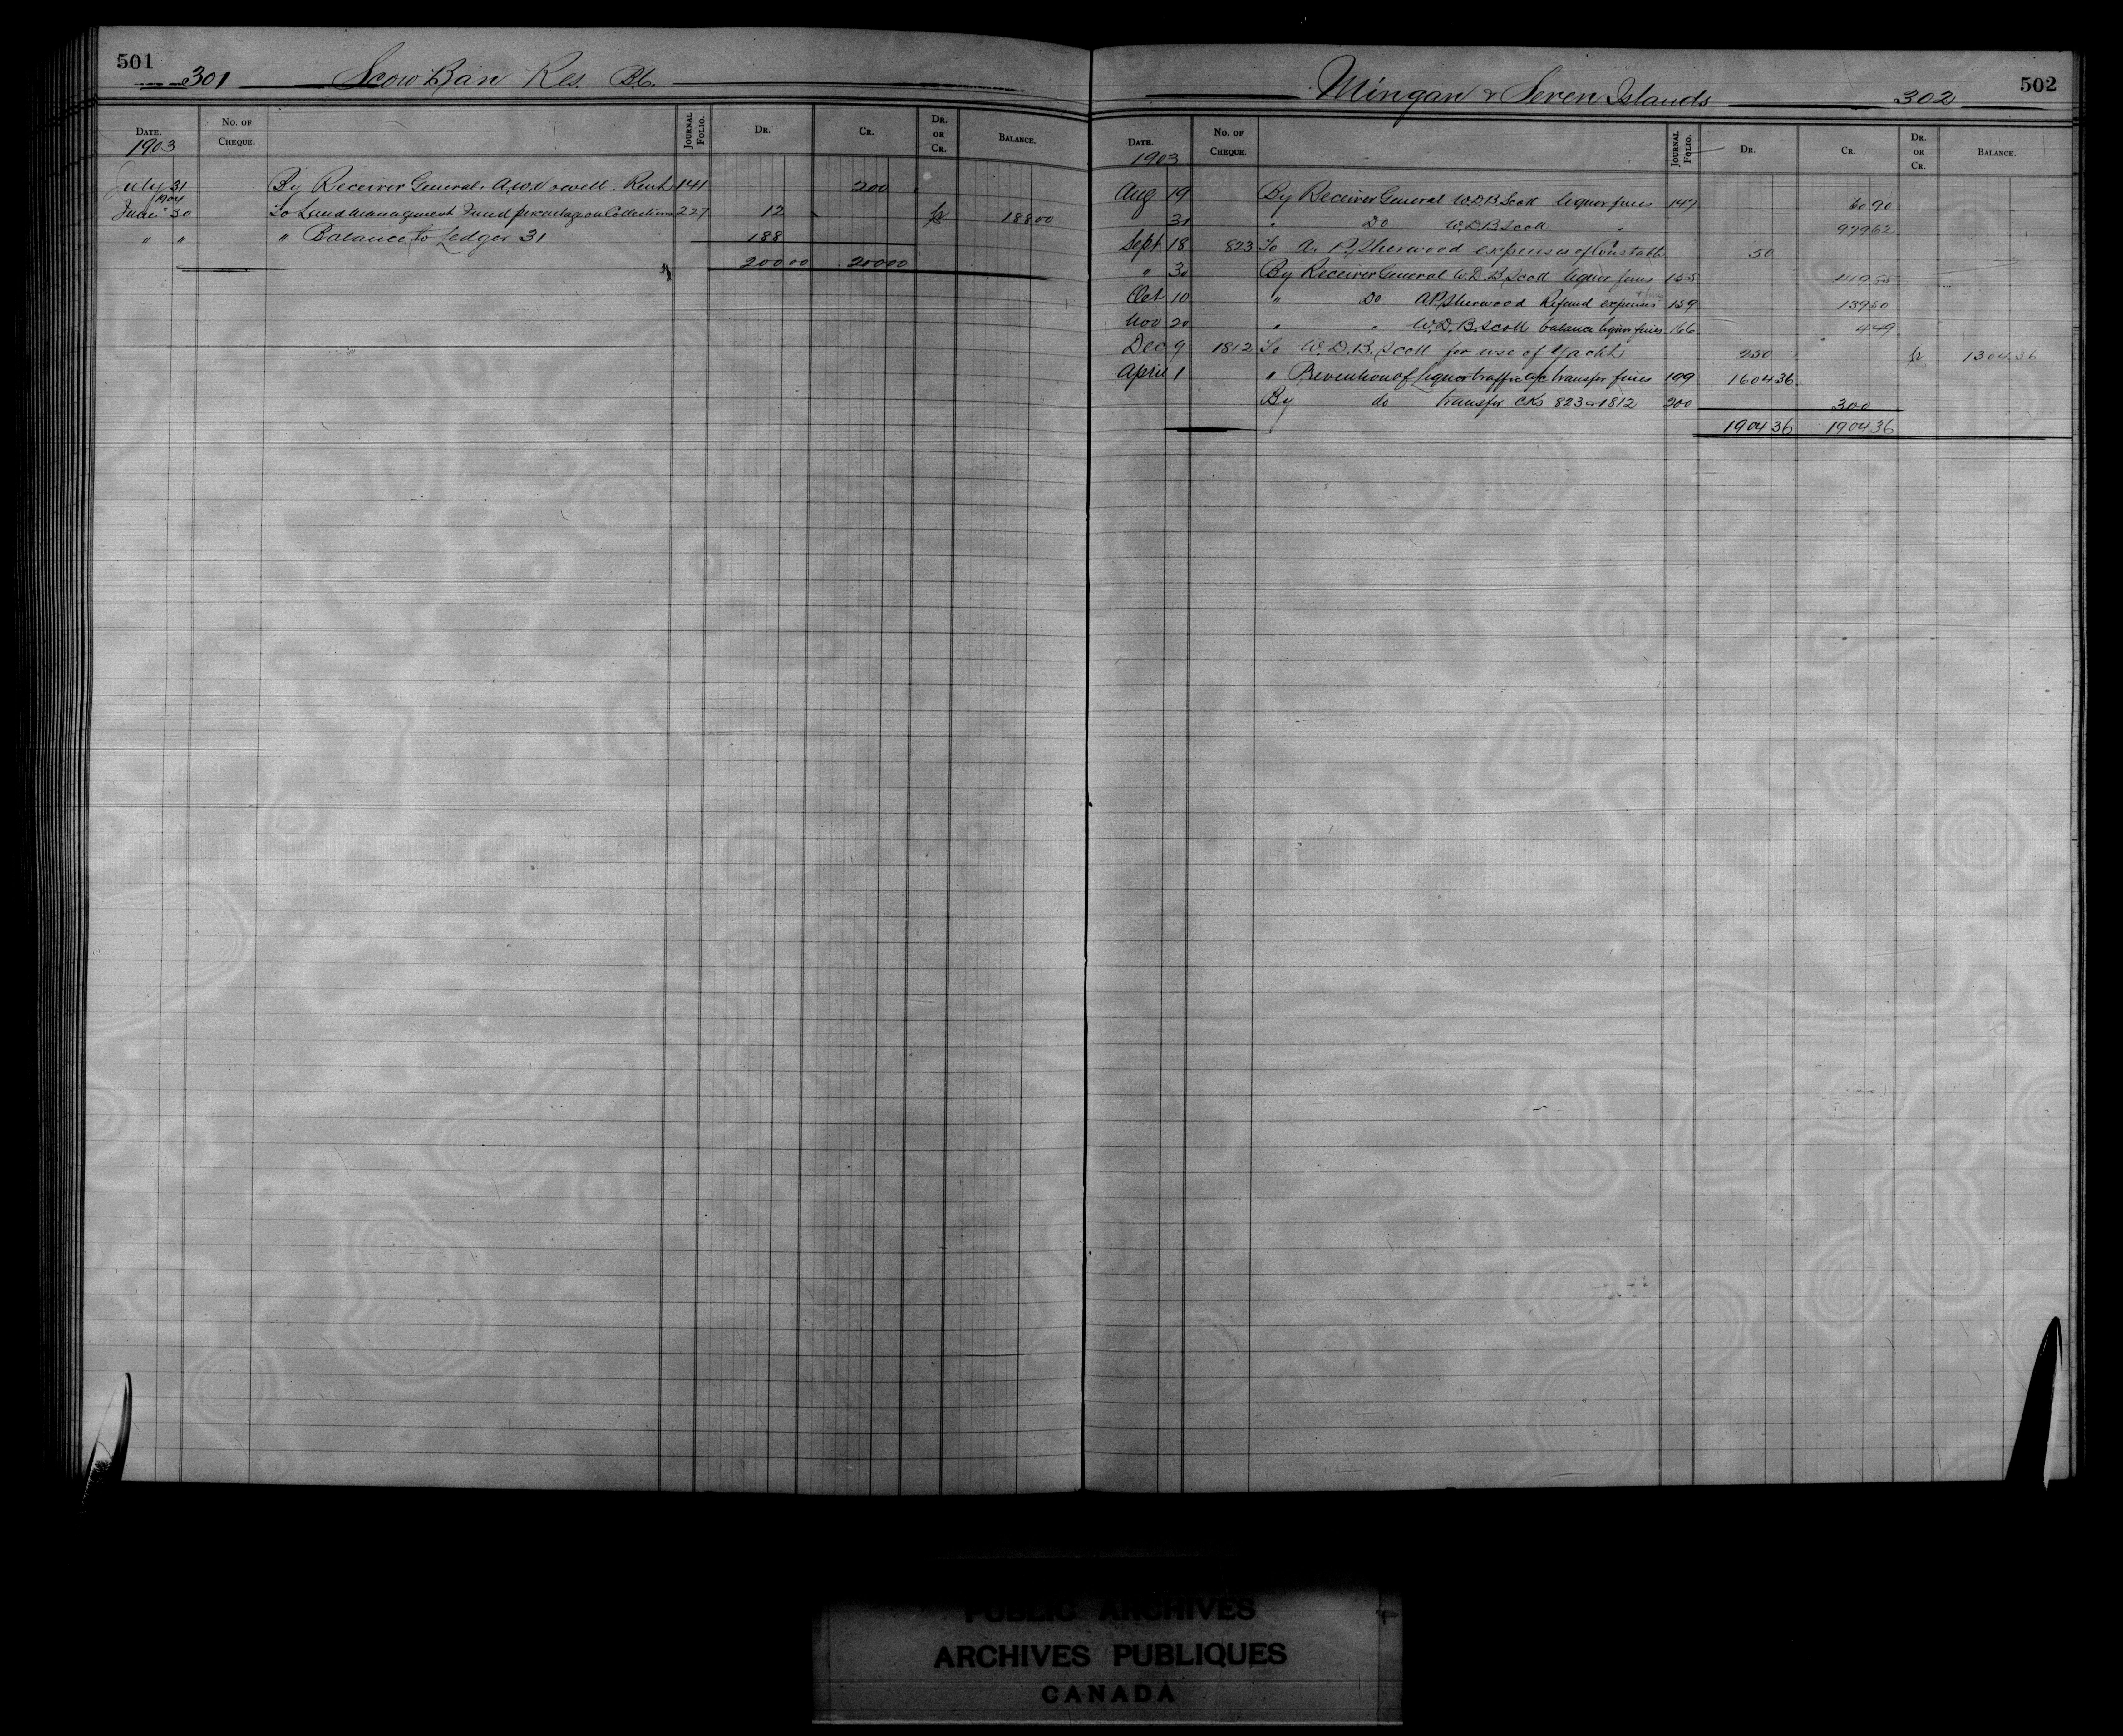 501
301 Scow Ban Res. B.C.
DATE. No. OF CHEQUE. JOURNAL FOLIO. DR. CR. DR. OR CR. BALANCE.
1903
July 31 By Receiver General. A.W. Vowell. Rent 141 200
1904
June 30 To Land Management Fund percentage on Collections 227 12 Cr 188 00
" " " Balance to Ledger 31 188
200 00 200 00
502
Mingan & Seven Islands 302
DATE. No. OF CHEQUE. JOURNAL FOLIO. DR. CR. DR. OR CR. BALANCE.
1903
Aug 19 By Receiver General W.D.B. Scott liquor fines 147 60 90
31 " Do W.D.B. Scott " 979 62
Sept 18 823 To A. P. Sherwood expenses of Constable 50
" 30 By Receiver General W.D.B. Scott liquor fines 155 419 85
Oct 10 " Do A.P. Sherwood Refund expenses 159 139 50
Nov 20 " " W.D.B. Scott balance liquor fines 166 4 49
Dec 9 1812 To W.D.B. Scott for use of Yacht 250 Cr 1304 36
April 1 " Prevention of Liquor traffic a/c transfer fines 199 1604 36
By do transfer CKs 823 & 1812 200 300
1904 36 1904 36
PUBLIC ARCHIVES
ARCHIVES PUBLIQUES
CANADA